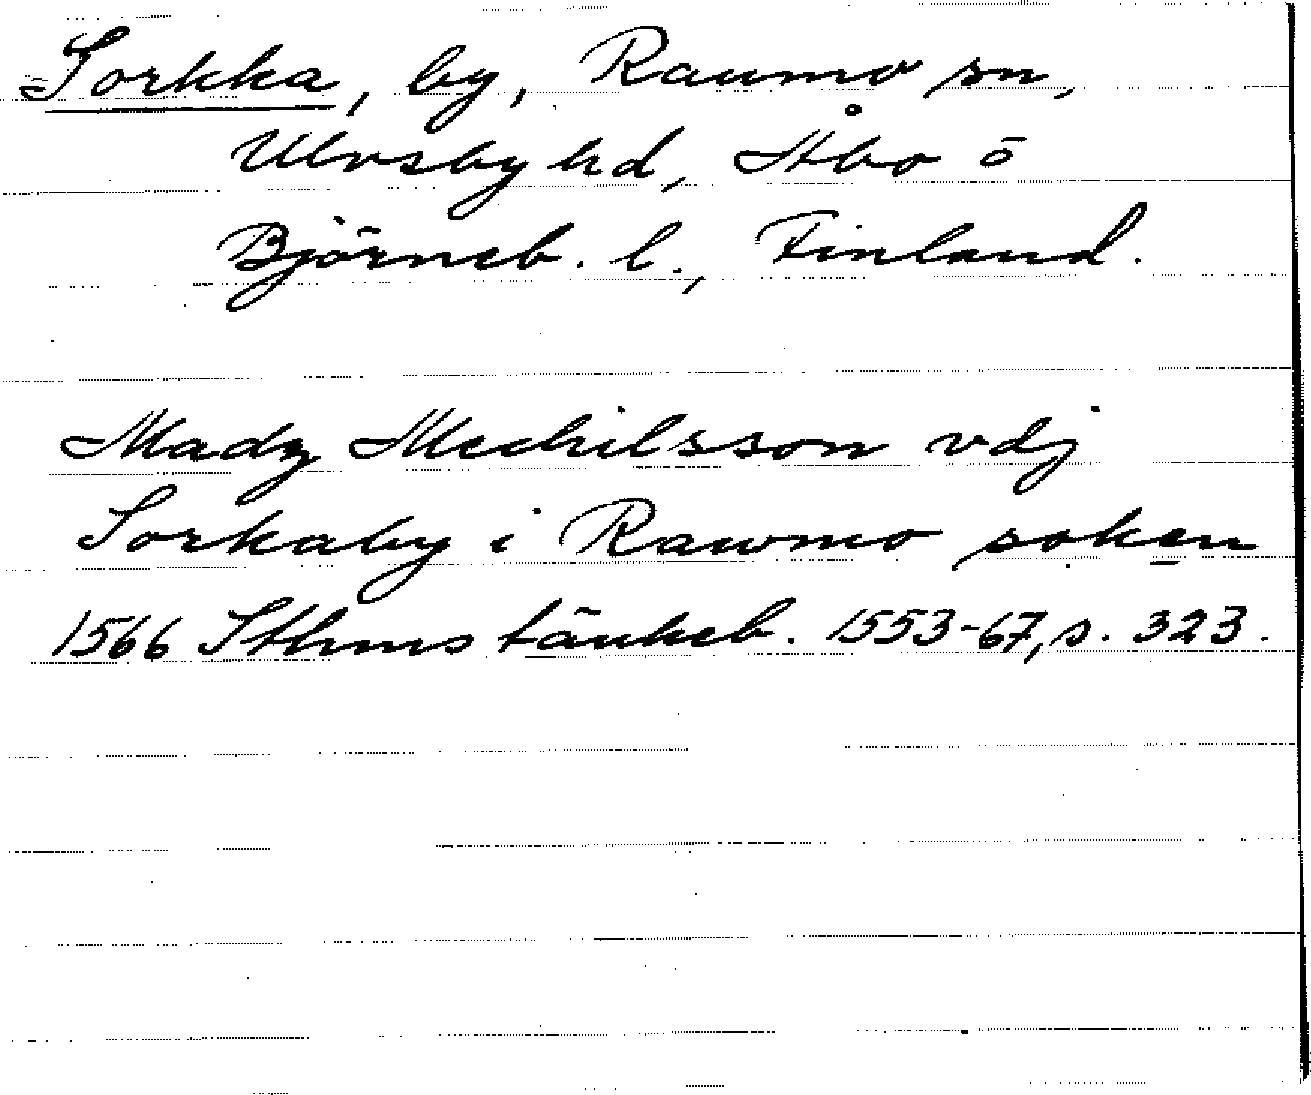 Sorkka, by, Raumo sn,
Ulvsby hd, Åbo o
Björneb. l., Finland.
Madz Mechilsson vdj
Sorkaby i Rawmo soken
1566 Sthms tänkeb. 1553-67, s. 323.